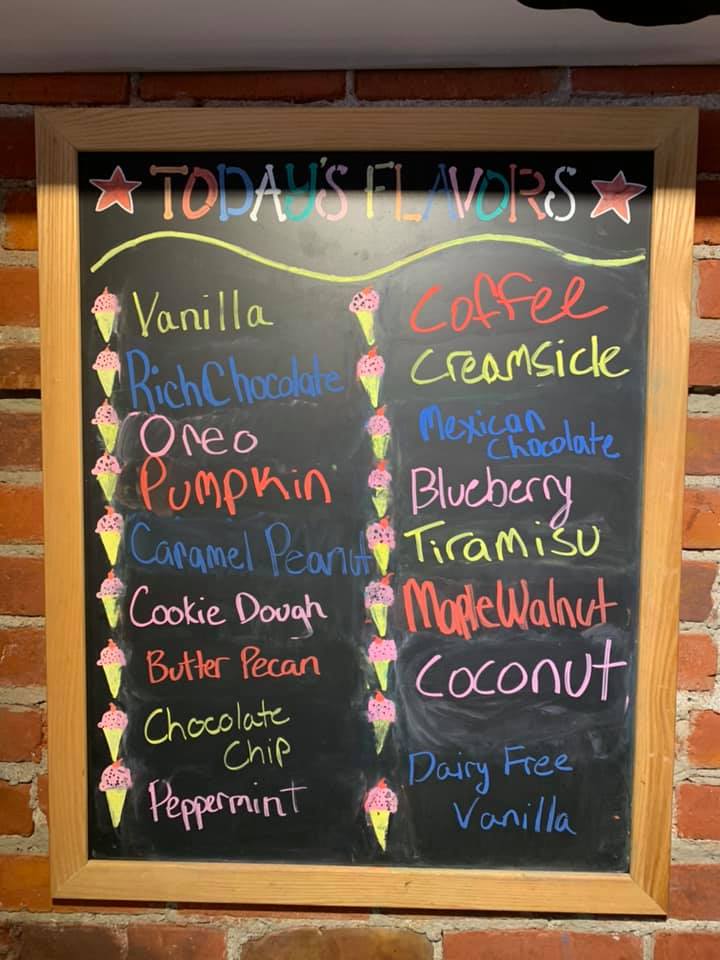 TODAY'S FLAVORS
Vanilla
Rich Chocolate
Oreo
Pumpkin
Caramel Peanut
Cookie Dough
Butter Pecan
Chocolate
Chip
Peppermint
Coffee
Creamsicle
Mexican
Chocolate
Blueberry
Tiramisu
Maple Walnut
Coconut
Dairy Free
Vanilla